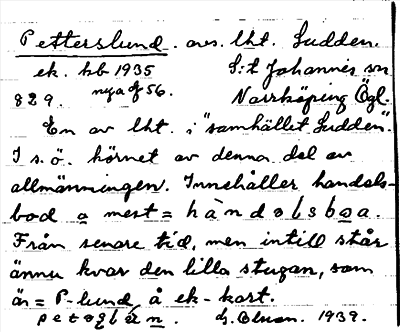 Petterslund. avs. lht. Sudden.
ek. kb 1935 S:t Johannes sn
829. nya nr 56. Norrköping Ögl.
En av lht. i "samhället Sudden".
I s.ö. hörnet av denna del av
allmänningen. Innehåller handels-
bod o mest = hàndəlsboa.
Från senare tid, men intill står
ännu kvar den lilla stugan, som
är = P-lund å ek-kart.
G. Olson. 1939.